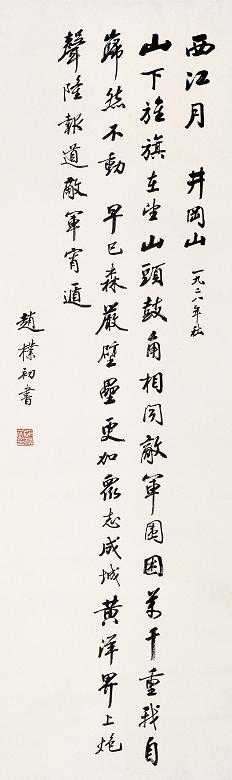 西江月 井岡山 一九二八年秋
山下旌旗在望山頭鼓角相闻敵軍围困萬千重我自
巋然不動 早已森嚴壁壘更加眾志成城黄洋界上炮
聲隆報道敵軍宵遁
趙樸初書